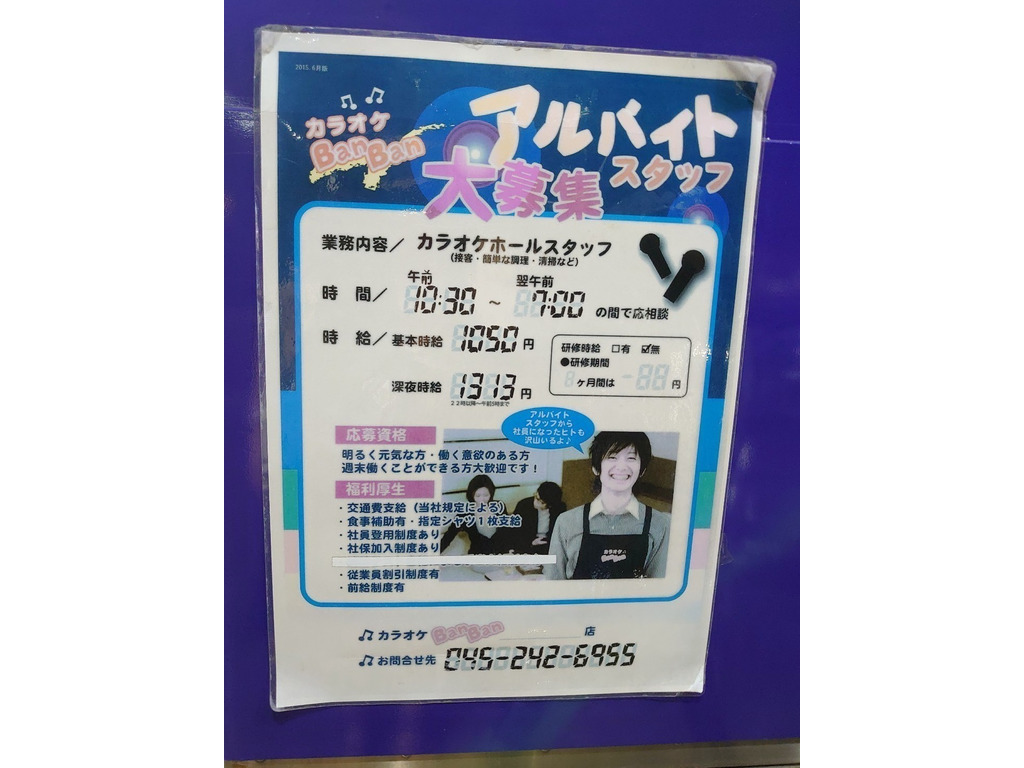 2015.6月版
カラオケ
BanBan
アルバイト
スタッフ
大募集
業務内容／ カラオケホールスタッフ
(接客・簡単な調理・清掃など)
午前 翌午前
時 間／ 10:30 ～ 7:00 の間で応相談
時 給／ 基本時給 1050 円
深夜時給 1313 円
22時以降～午前5時まで
研修時給 □有 ☑無
●研修期間
ヶ月間は - 円
アルバイト
スタッフから
社員になったヒトも
沢山いるよ♪
応募資格
明るく元気な方・働く意欲のある方
週末働くことができる方大歓迎です！
福利厚生
・交通費支給（当社規定による）
・食事補助有・指定シャツ1枚支給
・社員登用制度あり
・社保加入制度あり
・従業員割引制度有
・前給制度有
カラオケ
BanBan
カラオケ BanBan 店
お問合せ先 045-242-6955